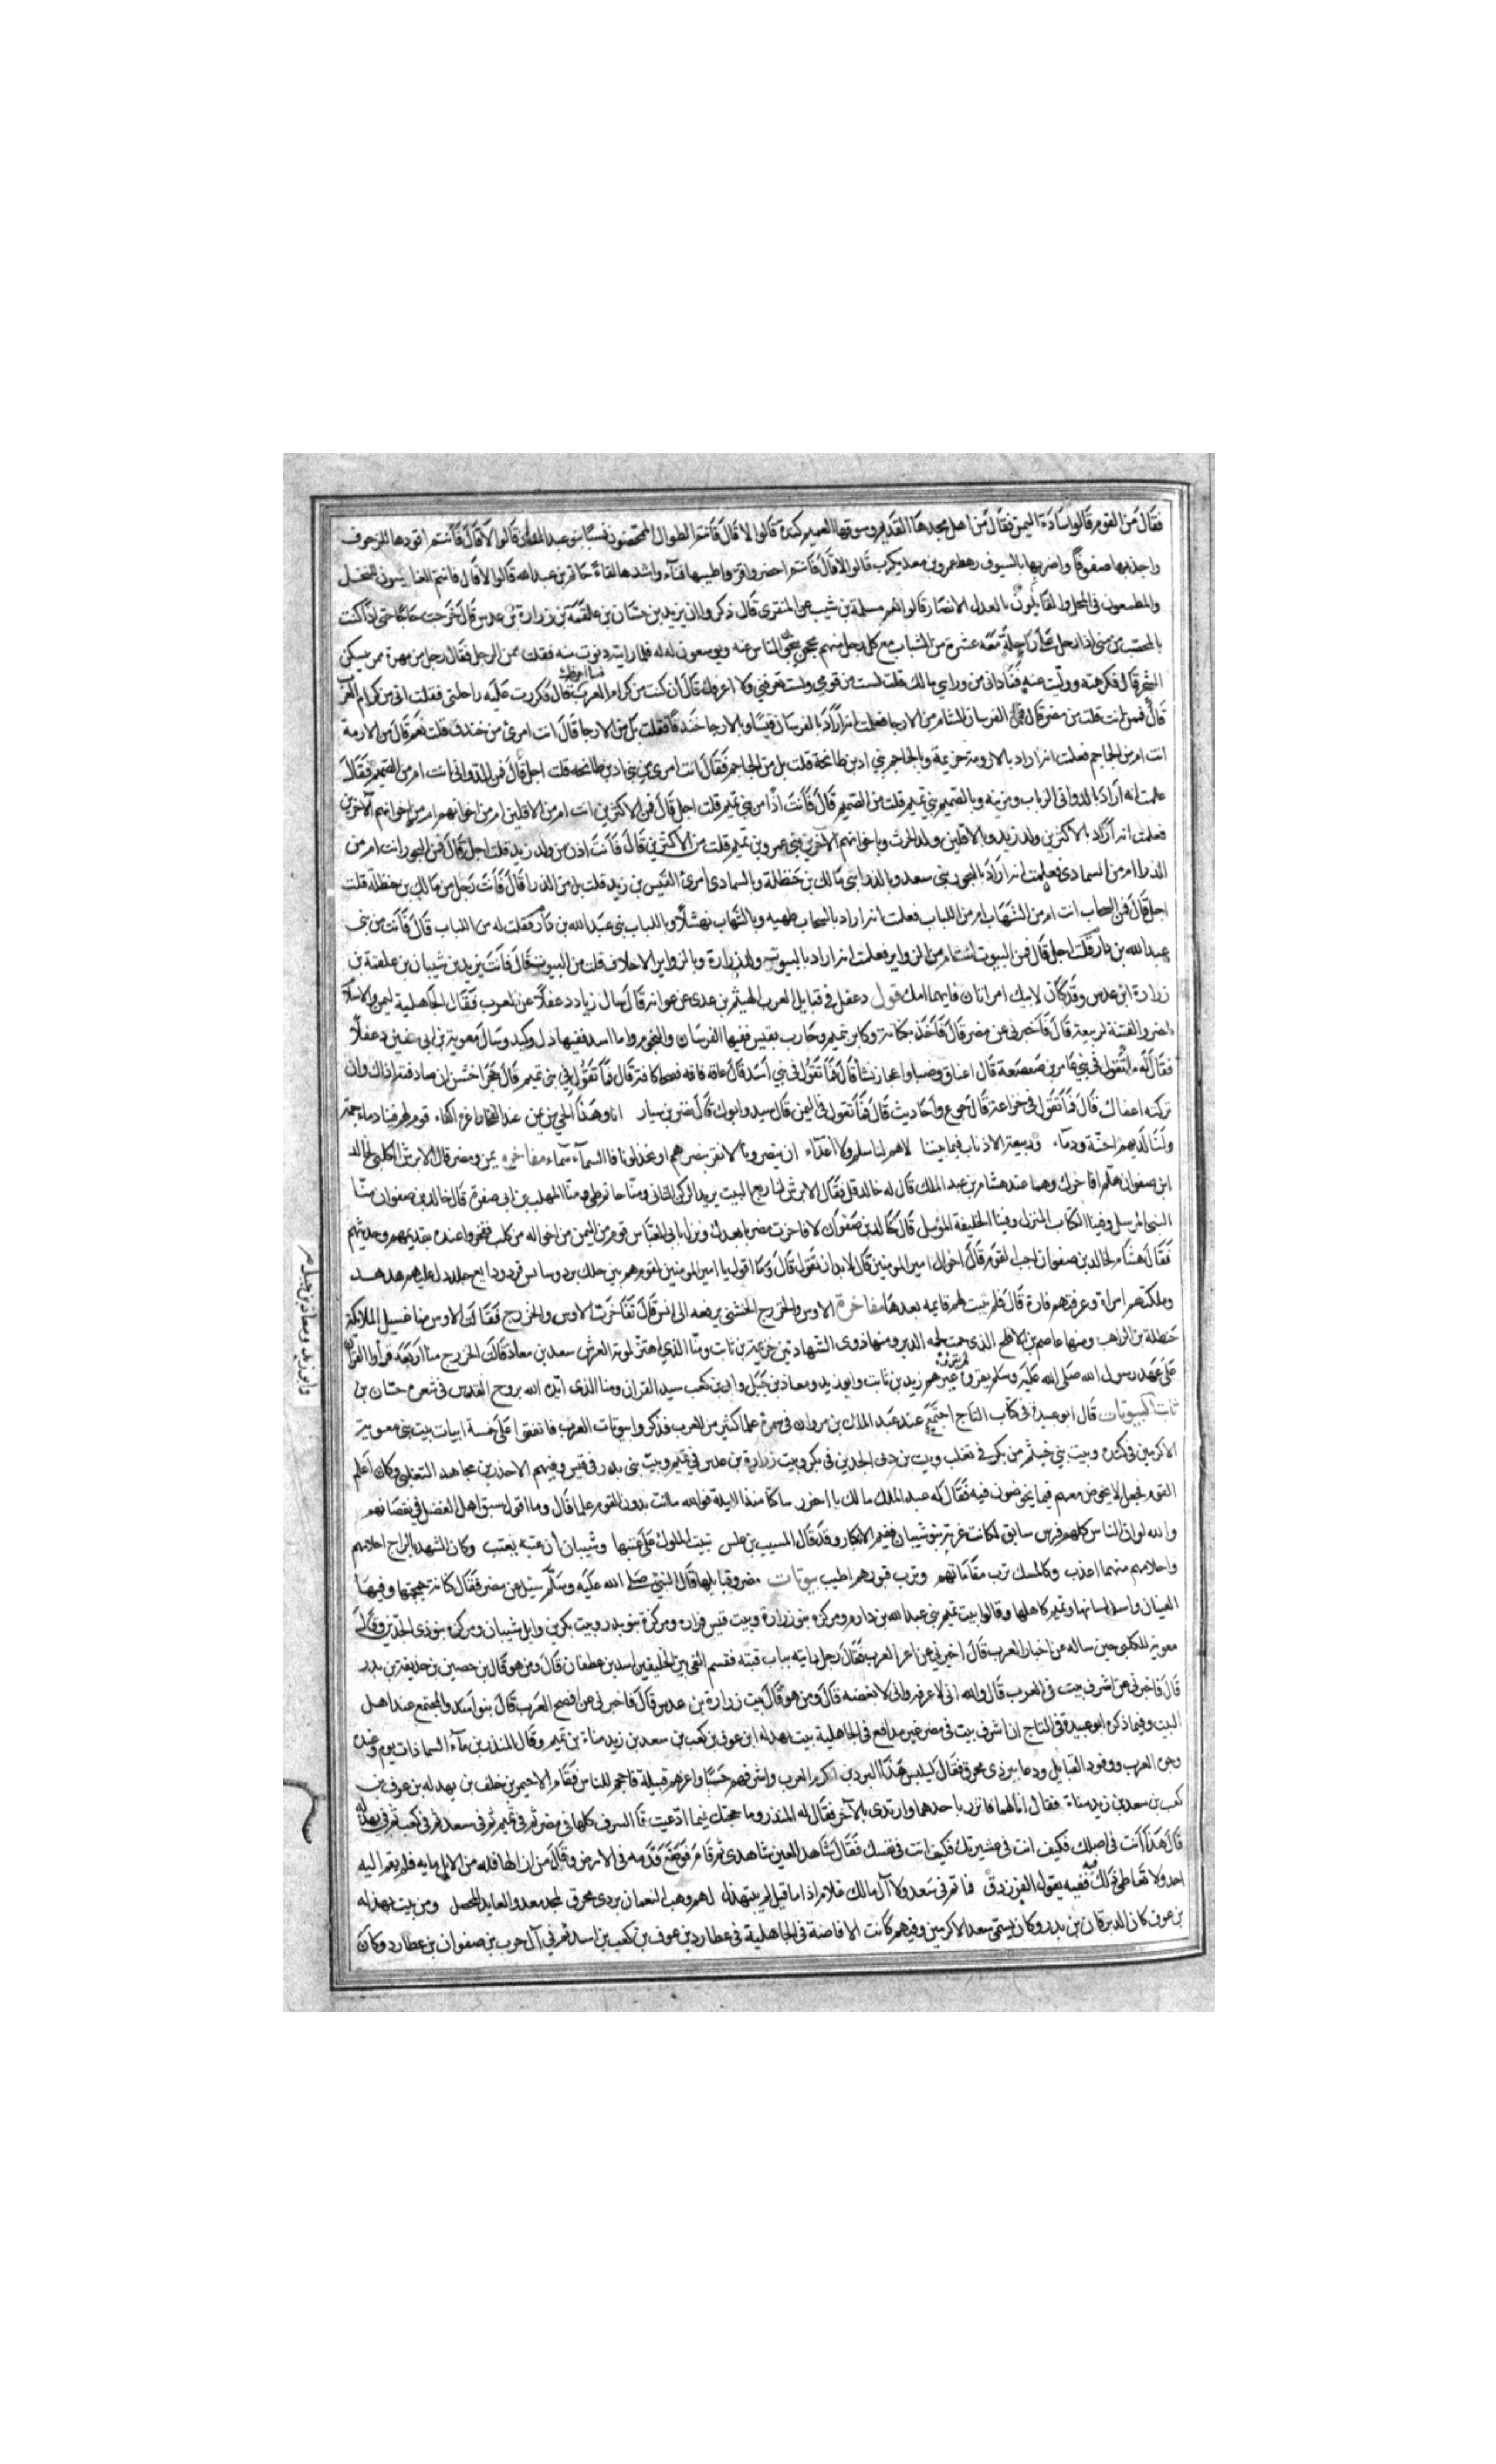 فقال من القوم قالوا سادة اليمن فقال من اهل مجدها القديم وسوقها العميم كندة قالوا لا قال فانتم الطوال المحتضون نسبا بنو عبد المدان قالوا لا قال فانتم اقودها للزحوف
صفوفا واضربها بالسيوف رهط عمرو بن معد يكرب قالوا لا قال فانتم احضرها قرا واطيبها فناء واشدها لقاء رهط حاتم بن عبد الله قالوا لا قال فانتم الغارسون للنخل
والمطعمون في المحل والقايلون بالعدل الانصار قالوا نعم مسلمة بن شبيب عن المنقرى قال ذكروا ان يزيد بن شيبان بن علقمة بن زرارة بن عدس قال خرجت حاجا حتى اذا كنت
بالمحصب من منى اذا رجل على راحلة معه عشرة من الشباب مع كل رجل منهم محجن ينحى الناس عنه ويوسعون له فلما رايته دنوت منه فقلت ممن الرجل فقال رجل من مهرة ممن يسكن
الشحر قال فكرهته ووليت عنه فنادانى من وراي مالك قلت لست من قومي ولست تعرفني ولا اعرفك قال ان كنت من كرام العرب قال فكررت عليه راحلتى فقلت انى من كرام العرب
قال فممن انت قلت من مضر قال فمن الفرسان انت ام من الارجا فعلمت انه اراد بالفرسان قيسا وبالارجا خندفا فقلت بل من الارجا قال انت امرئ من خندف قلت نعم قال من الارمة
انت ام من الجماجم فعلمت انه اراد بالارومة خزيمة وبالجماجم بني اد بن طابخة قلت بل من الجماجم فقال انت امرئ من بني اد بن طابخة قلت اجل قال فمن الدوانى انت ام من الصميم فقال
علمت انه اراد بالدوانى الرباب ومزينه وبالصميم بني تميم قلت من الصميم قال فانت اذا من بني تميم قلت اجل قال فمن الاكثرين انت ام من الاقلين ام من اخوانهم الآخرين
فعلمت انه اراد بالاكثرين ولد زيد وبالاقلين ولد الحرث وباخوانهم الآخرين بني عمرو بن تميم قلت من الاكثرين قال فانت اذن من ولد زيد قلت اجل قال فمن البحور انت ام من
الذرا ام من الثماد فعلمت انه اراد بالبحور بني سعد وبالذرا بني مالك بن حنظلة وبالثماد امرئ القيس بن زيد قلت بل من الذرا قال فانت رجل من مالك بن حنظلة قلت
اجل قال فمن السحاب انت ام من الشهاب ام من اللباب فعلمت انه اراد بالسحاب طهيه وبالشهاب نهشلا وباللباب بني عبد الله بن دارم فقلت له من اللباب قال فانت من بني
عبد الله بن دارم قلت اجل قال فمن البيوت انت ام من الزواير فعلمت انه اراد بالبيوت ولد زرارة وبالزواير الاحلاف قلت من البيوت قال فانت يزيد بن شيبان بن علقمة بن
زرارة ابن عدس وقد كان لابيك امراتان فايهما امك قول دعفل في قبايل العرب الهيثم بن عدى عن عوانه قال سال زياد دعفلا عن العرب فقال الجاهلية ليمن والاسلام
لمضر والفتنة لربيعة قال فاخبرنى عن مضر قال فاخر بكنانة وكابر بتميم وحارب بقيس ففيها الفرسان والنجوم واما اسد ففيها ذل وكيد وسال معوية بن ابي سفين دعفلا
فقال له ما تقول في بني عامر بن صعصعة قال اعناق وظبا واعجاز نسا قال فما تقول في بني اسد قال عافه قافه فصحا كافة قال فما تقول في بني تميم قال حجر اخشن ان صادفته اذاك وان
تركته اعفاك قال فما تقول في خزاعة قال جوع واحاديث قال فما تقول في اليمن قال سيد وانوك قال نصر بن سيار انا وهذا الحي من يمن عند الفخار اعزة اكفاء قوم لهم فينا دماء جمة
ولنا لديهم احنة ودماء وربيعة الاذناب فيما بيننا لاهم لنا سلم ولا اعداء ان ينصرونا لا نعز بنصرهم او يخذلونا فالسماء سماء مفاخره يمن ومضر قال الابرش الكلبي لخالد
ابن صفوان هلم افاخرك وهما عند هشام بن عبد الملك قال له خالد قل فقال الابرش لنا ربع البيت يريد الركن اليمانى ومنا حاتم طي ومنا المهلب بن ابى صفرة قال خالد بن صفوان منا
النبي المرسل وفينا الكتاب المنزل وفينا الخليفة المؤمل قال خالد بن صفوان لا فاخرت مضريا بعدك ونزل بابى العباس قوم من اليمن من اخواله من كلب ففخروا عنده بقديمهم وحديثهم
فقال هشام لخالد بن صفوان اجب القوم قال اخوال امير المومنين قال لابد ان تقول قال وما اقول يا امير المومنين لقوم هم بين حايك برد وسايس قرد ودابغ جلد دل عليهم هدهد
وملكتهم امراة وغرقتهم فارة قال فلم يثبت لهم قايمه بعدها مفاخرة الاوس والخزرج الخشنى يرفعه الى انس قال تفاخرت الاوس والخزرج فقالت الاوس منا غسيل الملايكة
حنظلة بن الراهب ومنا عاصم بن الافلح الذى حمت لحمه الدبر ومنا ذو الشهادتين خزيمة بن ثابت ومنا الذي اهتز لموته العرش سعد بن معاذ قالت الخزرج منا اربعة قراوا القران
على عهد رسول الله صلى الله عليه وسلم لم يقراه غيرهم زيد بن ثابت وابو زيد ومعاذ بن جبل وابى بن كعب سيد القران ومنا الذى ايده الله بروح القدس في شعره حسان بن
ثابت البيوتات قال ابو عبيدة فى كتاب التاج اجتمع عند عبد الملك بن مروان فى سمره علما كثير من العرب فذكروا بيوتات العرب فاتفقوا على خمسة ابيات بيت بني معوية
الاكرمين فى كنده وبيت بني جشم من بكر في تغلب وبيت بن ذى الجدين فى بكر وبيت زرارة بن عدس في تميم وبيت بنى بدر فى قيس وفيهم الاحرز بن مجاهد التغلبي وكان اعلم
القوم فجعل لا يخوض معهم فيما يخوضون فيه فقال له عبد الملك مالك يا احرز ساكتا منذ الليلة فوالله ما انت بدون القوم علما قال وما اقول سبق اهل الفضل في نقصانهم
والله لو ان للناس كلهم فرس سابق لكانت غرته بنو شيبان ففيم الاكثار وقد قال المسيب بن علس تبيت الملوك على عتبها وشيبان ان عتبت يعتب وكالشهد بالراح اخلاقهم
واحلامهم منهما اعذب وكالمسك ترب مقاماتهم وترب قبورهم اطيب بيوتات مضر وقبايلها قال النبي صلى الله عليه وسلم سئل عن مضر فقال كنانة جمجمتها وفيها
العينان واسد لسانها وتميم كاهلها وقالوا بيت تميم بنى عبد الله بن دارم ومركزه بنو زرارة وبيت قيس فزاره ومركزة بنو بدر وبيت بكر بن وايل شيبان ومركزه بنو ذى الجدين وقال
معوية للكلبى حين ساله عن اخبار العرب قال اخبرنى عن اعز العرب فقال رجل رايته بباب قبته فقسم الفى بين الحليفين اسد بن غطفان قال ومن هو قال بن حصين بن حذيفة بن بدر
قال فاخبرنى عن اشرف بيت فى العرب قال والله انى لاعرفه وانى لابغضه قال ومن هو قال بيت زرارة بن عدس قال فاخبرنى عن افصح العرب قال بنو اسد والمجتمع عند اهل
البيت وفيما ذكره ابو عبيدة فى التاج ان اشرف بيت فى مضر غير مدافع فى الجاهلية بيت بهدله ابن عوف بن كعب بن سعد بن زيد مناة بن تميم وقال المنذر بن ماء السما ذات يوم وعنده
وجوه العرب ووفود القبايل ودعا ببردى محرق فقال ليلبس هذا البردين اكرم العرب واشرفهم حسبا واعزهم قبيلة فاحجم الناس فقام الاحيمر بن خلف بن بهدله بن عوف بن
كعب بن سعد بن زيد مناة فقال انا لهما فاتزر باحدهما وارتدى بالآخر فقال له المنذر وما حجتك فيما ادعيت قال الشرف كلها فى مضر ثم فى تميم ثم فى سعد ثم فى كعب ثم فى بهدلة
قال هذا انت فى اصلك فكيف انت فى عشيرتك فكيف انت فى نفسك فقال شاهد العين شاهدى ثم قام فوضع قدمه فى الارض وقال من ازالها فله من الابل مايه فلم يقم اليه
احد ولا تعاطى ذلك ففيه يقول الفرزدق فما تم فى سعد ولا آل مالك غلام اذا ما قيل لم يتبهدل لهم وهب النعمان بردى محرق لمجد معد والعديد المحصل ومن بيت بهدله
بن عوف كان الزبرقان بن بدر وكان يسمى سعد الاكرمين وفيهم كانت الافاضة فى الجاهلية فى عطارد بن عوف بن كعب بن اسد ثم في آل حرب بن صفوان بن عطارد وكان
وابو زيد ومعاذ بن جبل